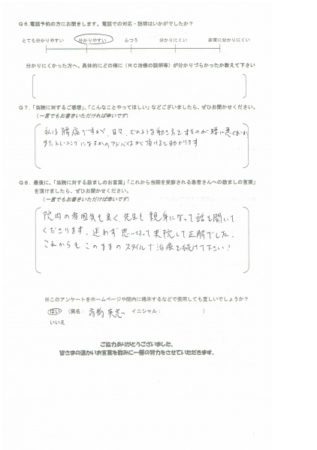 Q6.電話予約の方にお聞きします。電話での対応・説明はいかがでしたか？
とても分かりやすい　分かりやすい　ふつう　分かりにくい　非常に分かりにくい
分かりにくかった方へ、具体的にどの様に（　治療の説明等）が分かりづらかったか教えて下さい
Q7.「当院に対するご感想」、「こんなことやってほしい」などございましたら、ぜひお聞かせください。
（一言でもお書きいただければ幸いです）
私は腰痛ですが、日々、どのような動き方をするのが腰に悪
アドバイスが頂けると助かります
Q8.最後に、「当院に対する励ましのお言葉」「これから当院を受診される患者さんへの励ましの言葉」
を頂けましたら、ぜひお聞かせください。
（一言でもお書きいただければ幸いです）
院内の雰囲気も良く先生も親身になって話を聞いて
くださります。迷わず思い切って来院して正解でした。
これからもこのままのスタイルで治療を続けて下さい！
※このアンケートをホームページや院内に掲示するなどで使用しても宜しいでしょうか？
はい　（実名：　イニシャル：　）
いいえ
ご協力ありがとうございました。
皆さまの温かいお言葉を励みに一層の努力をさせていただきます。